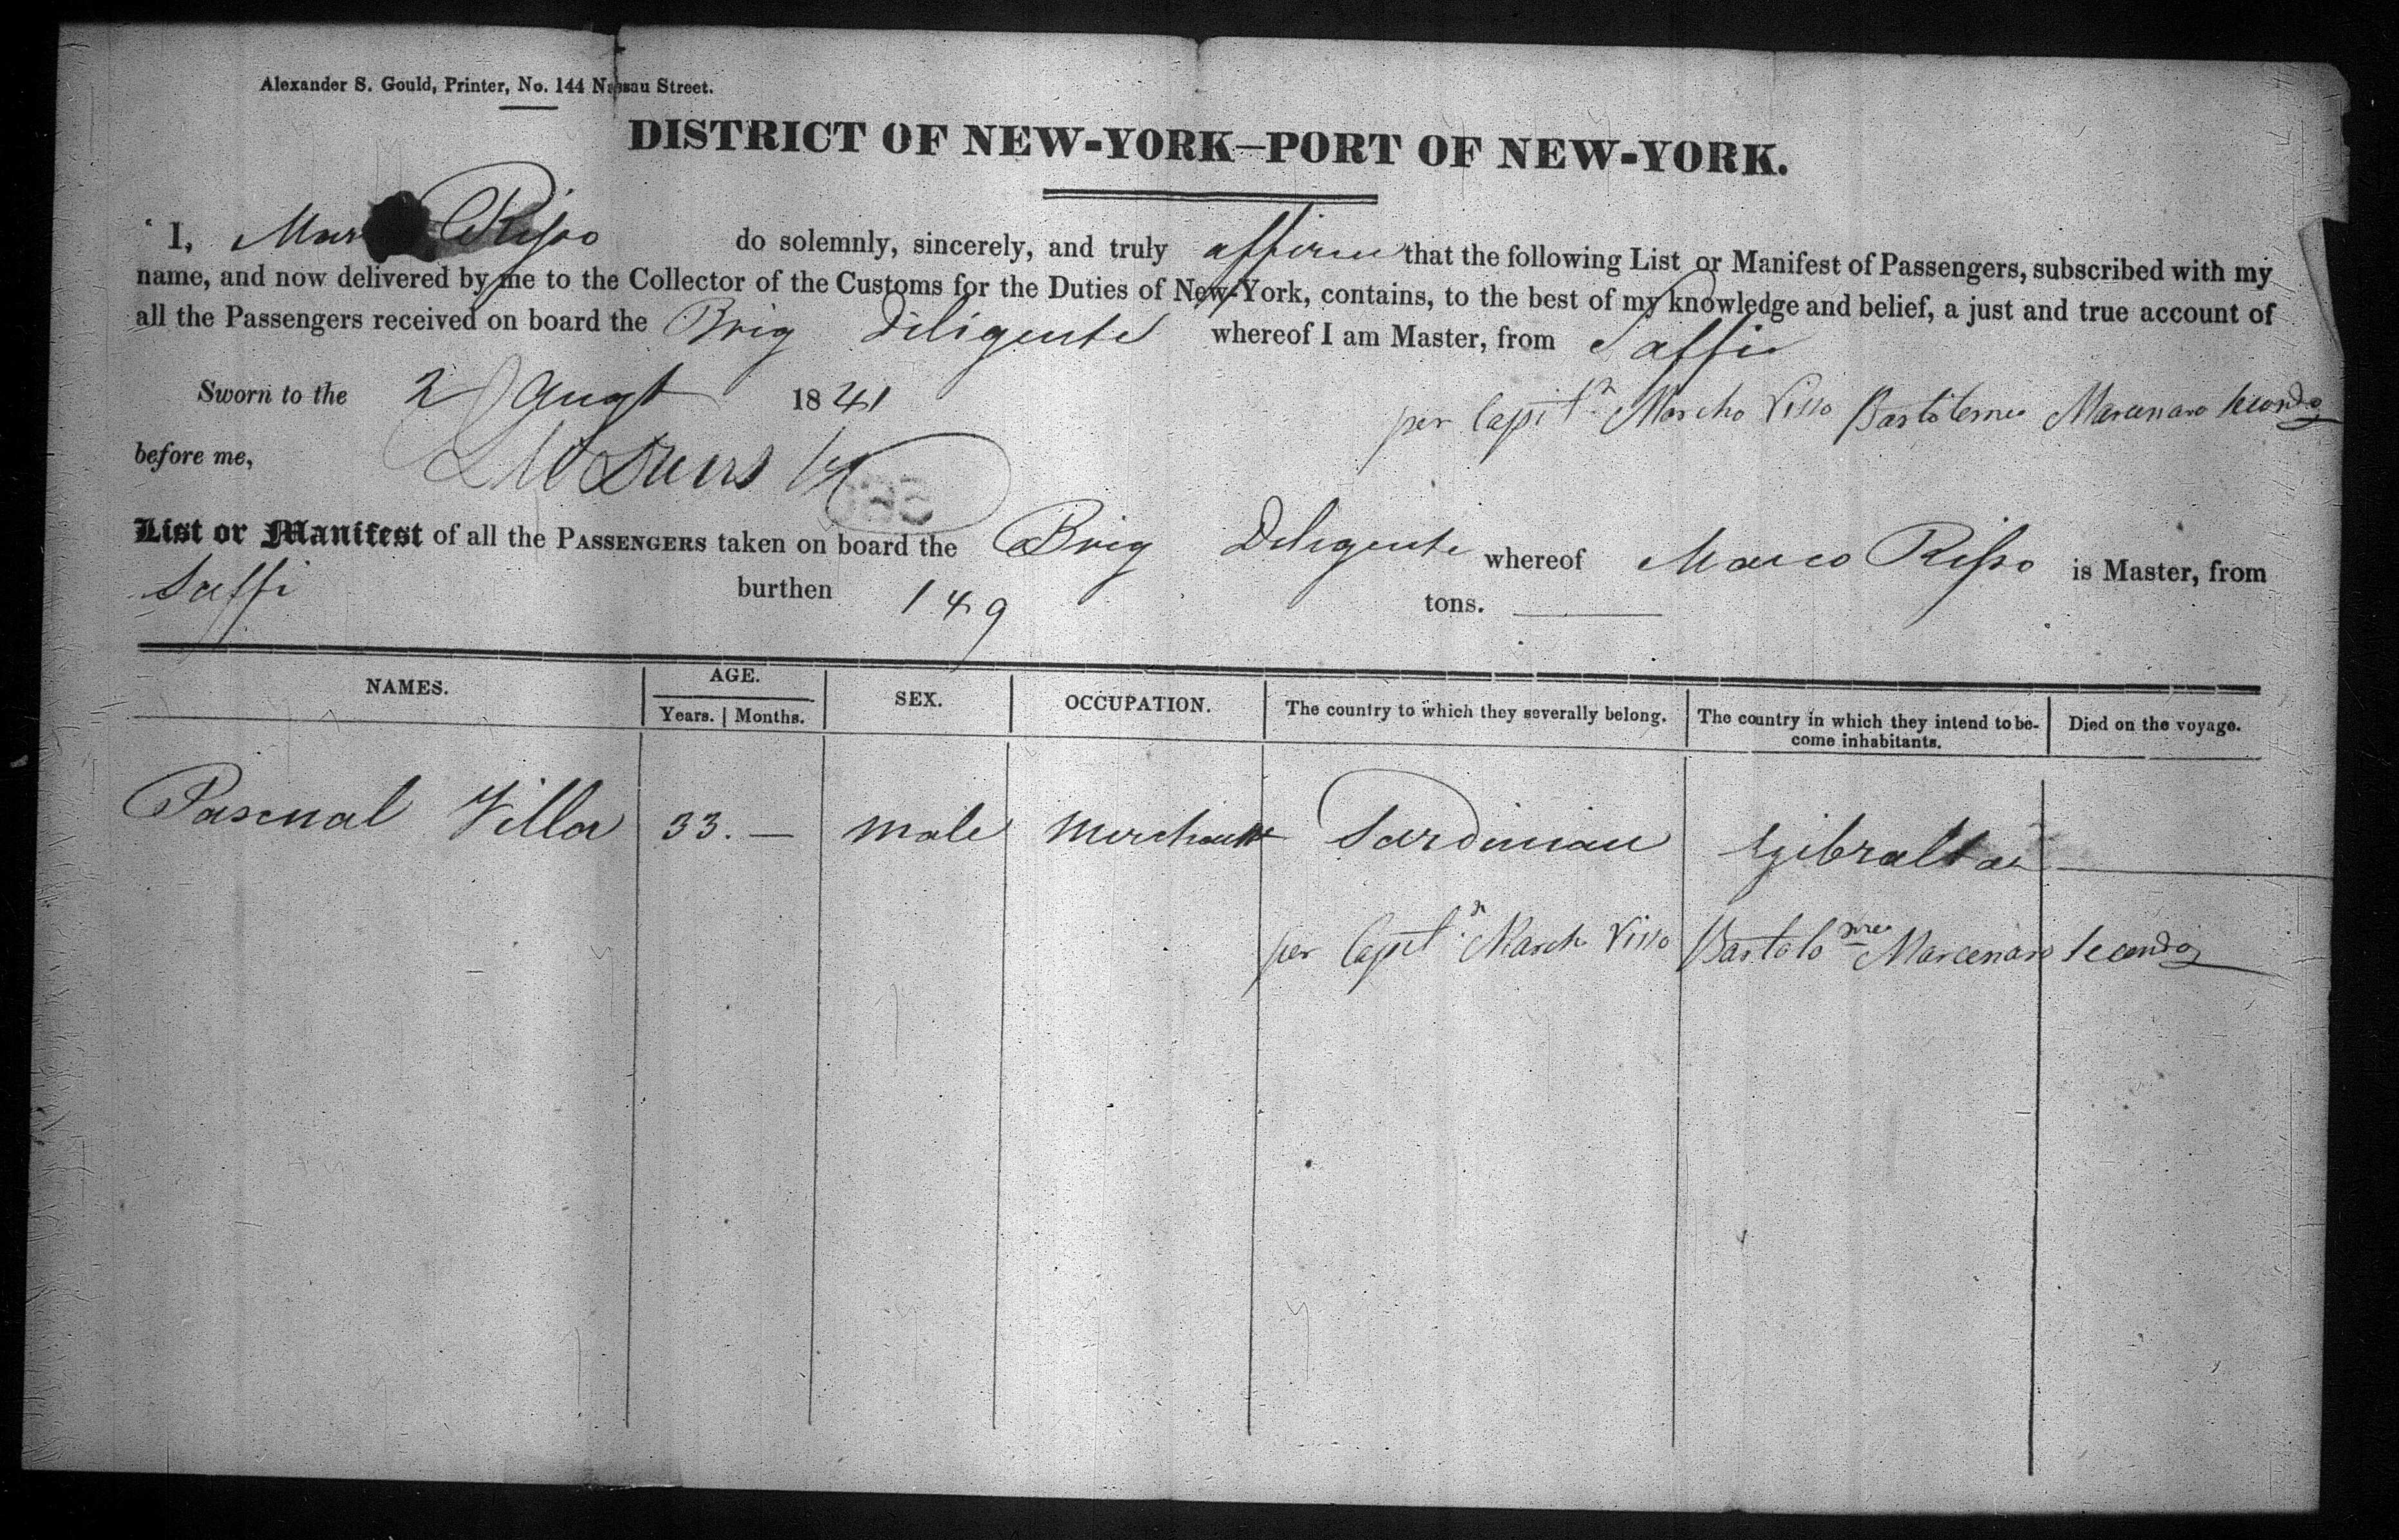 Alexander S. Gould, Printer, No. 144 Nassau Street.
DISTRICT OF NEW-YORK—PORT OF NEW-YORK.
I, Risso do solemnly, sincerely, and truly affirm that the following List or Manifest of Passengers, subscribed with my
name, and now delivered by me to the Collector of the Customs for the Duties of New-York, contains, to the best of my knowledge and belief, a just and true account of
all the Passengers received on board the Brig Diligente whereof I am Master, from Saffi
Sworn to the 2 Augt 1841
per Capitn Marcho Risso Bartolomeo Marcenaro Secondo
before me,
List or Manifest of all the PASSENGERS taken on board the Brig Diligente whereof Marco Risso is Master, from
Saffi burthen 149 tons.
NAMES. AGE. SEX. OCCUPATION. The country to which they severally belong. The country in which they intend to be-come inhabitants. Died on the voyage.
Years. Months.
Pascual Villa 33. — male Merchant Sardinian Gibraltar —
per Capitn March Risso Bartolomeo Marcenaro Secondo